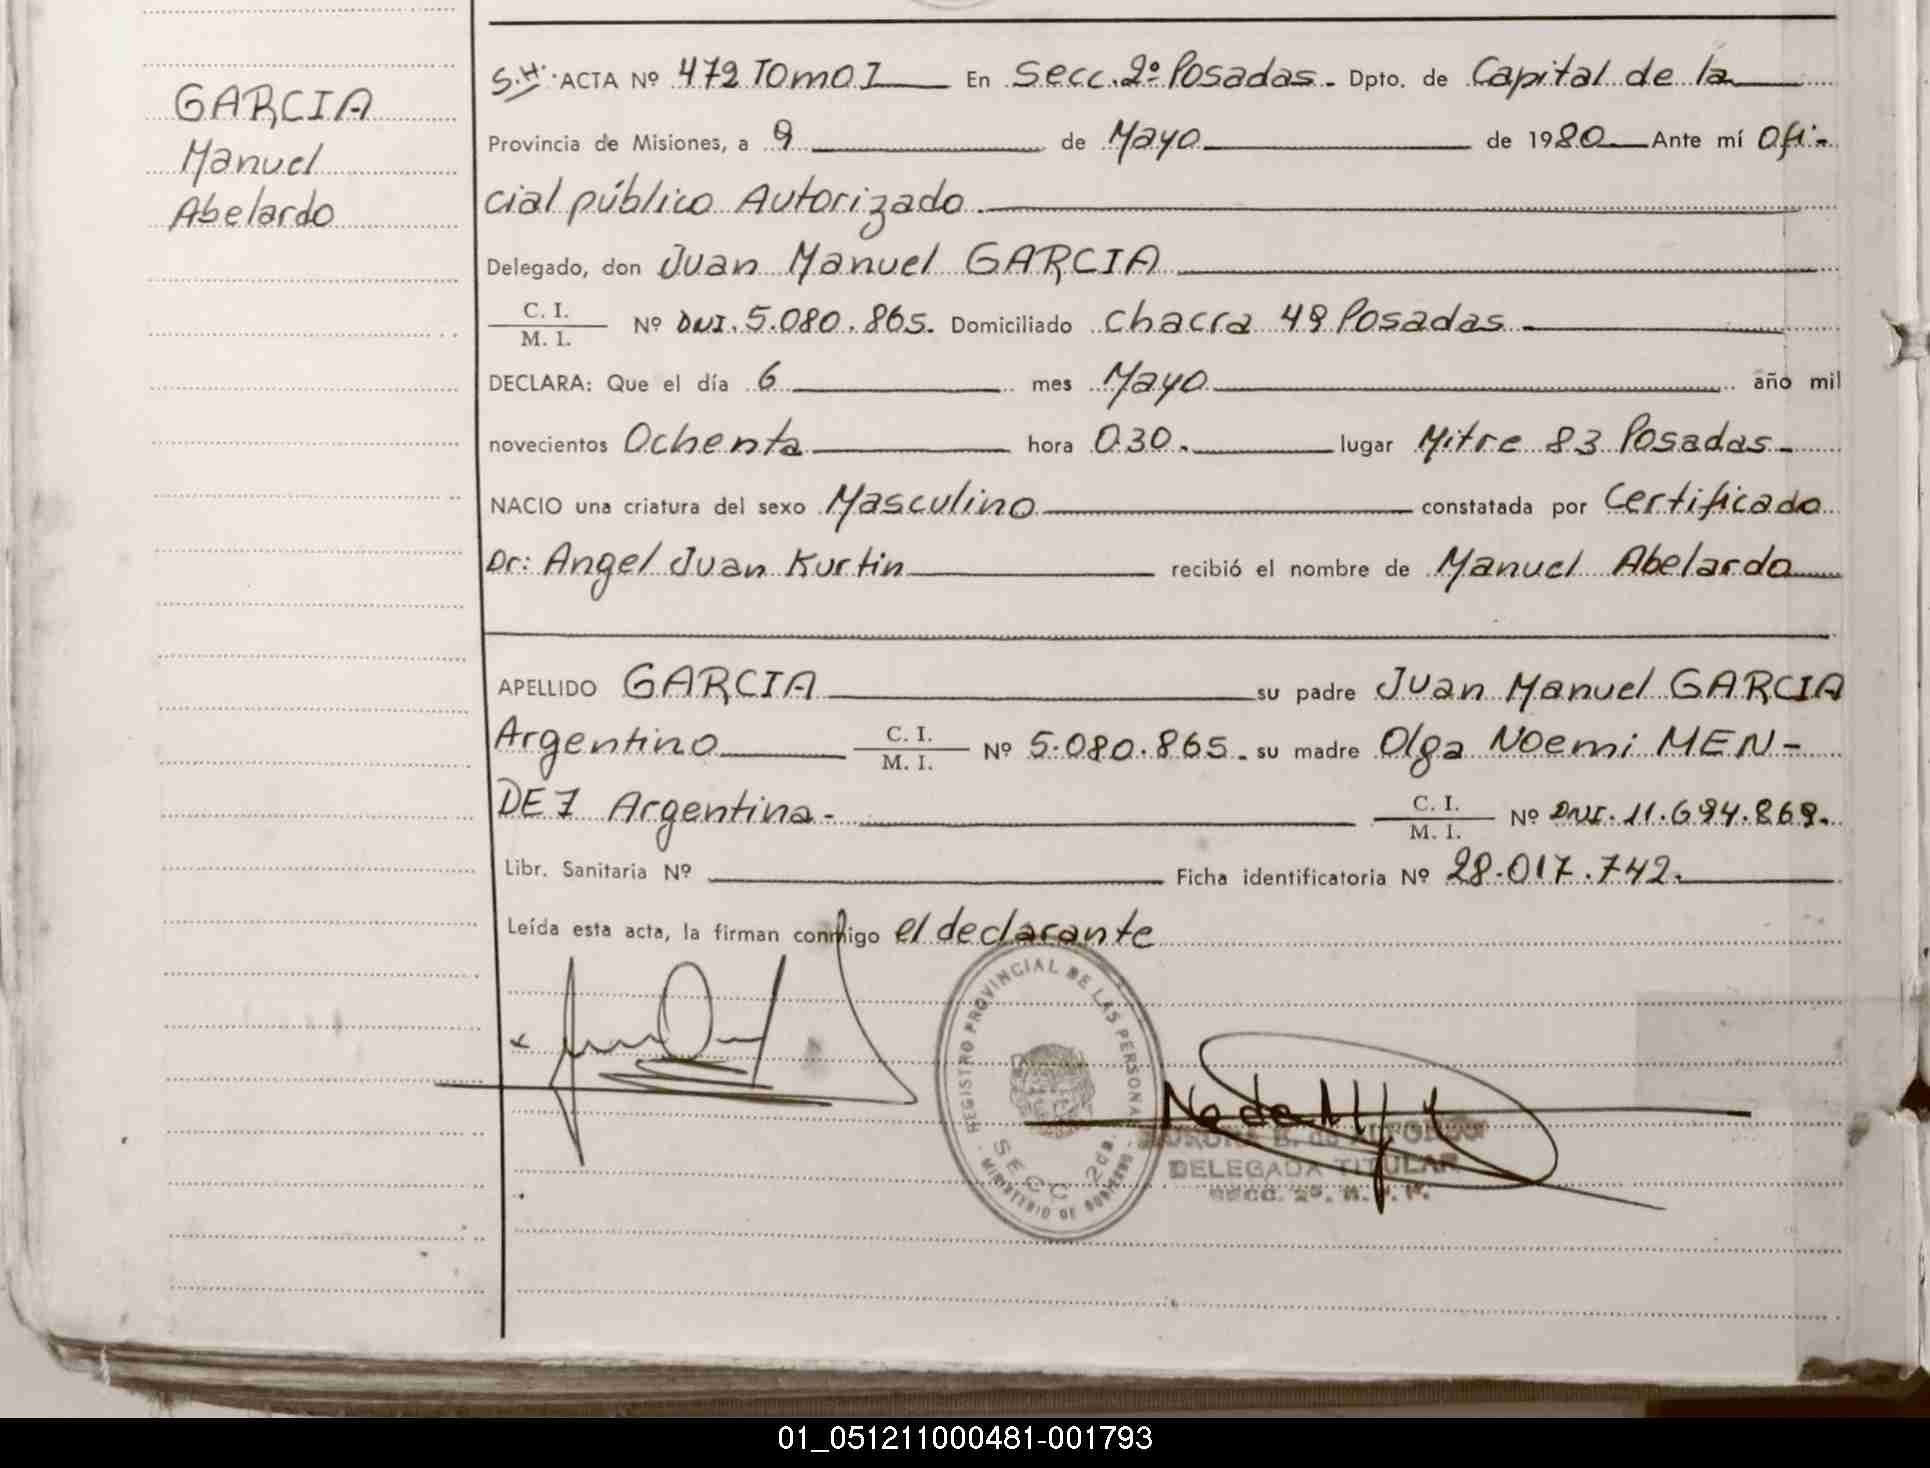 GARCIA
Manuel
Abelardo
S.H. ACTA Nº 472 Tomo I En Secc. 2º Posadas. Dpto. de Capital de la
Provincia de Misiones, a 9 de Mayo de 1980 Ante mí Ofi-
cial público Autorizado.
Delegado, don Juan Manuel GARCIA
C. I.
M. I. Nº DNI. 5.080.865. Domiciliado Chacra 49 Posadas
DECLARA: Que el día 6 mes Mayo año mil
novecientos Ochenta hora 0.30. lugar Mitre 83 Posadas-
NACIO una criatura del sexo Masculino constatada por Certificado
Dr: Angel Juan Kurtin recibió el nombre de Manuel Abelardo
APELLIDO GARCIA su padre Juan Manuel GARCIA
Argentino C. I.
M. I. Nº 5.080.865. su madre Olga Noemi MEN-
DEZ Argentina- C. I.
M. I. Nº DNI. 11.694.869.
Libr. Sanitaria Nº Ficha identificatoria Nº 28.017.742.
Leída esta acta, la firman conmigo el declarante
REGISTRO PROVINCIAL DE LAS PERSONAS
SECC 2da.
MINISTERIO DE GOBIERNO
DELEGADA TITULAR
01_051211000481-001793